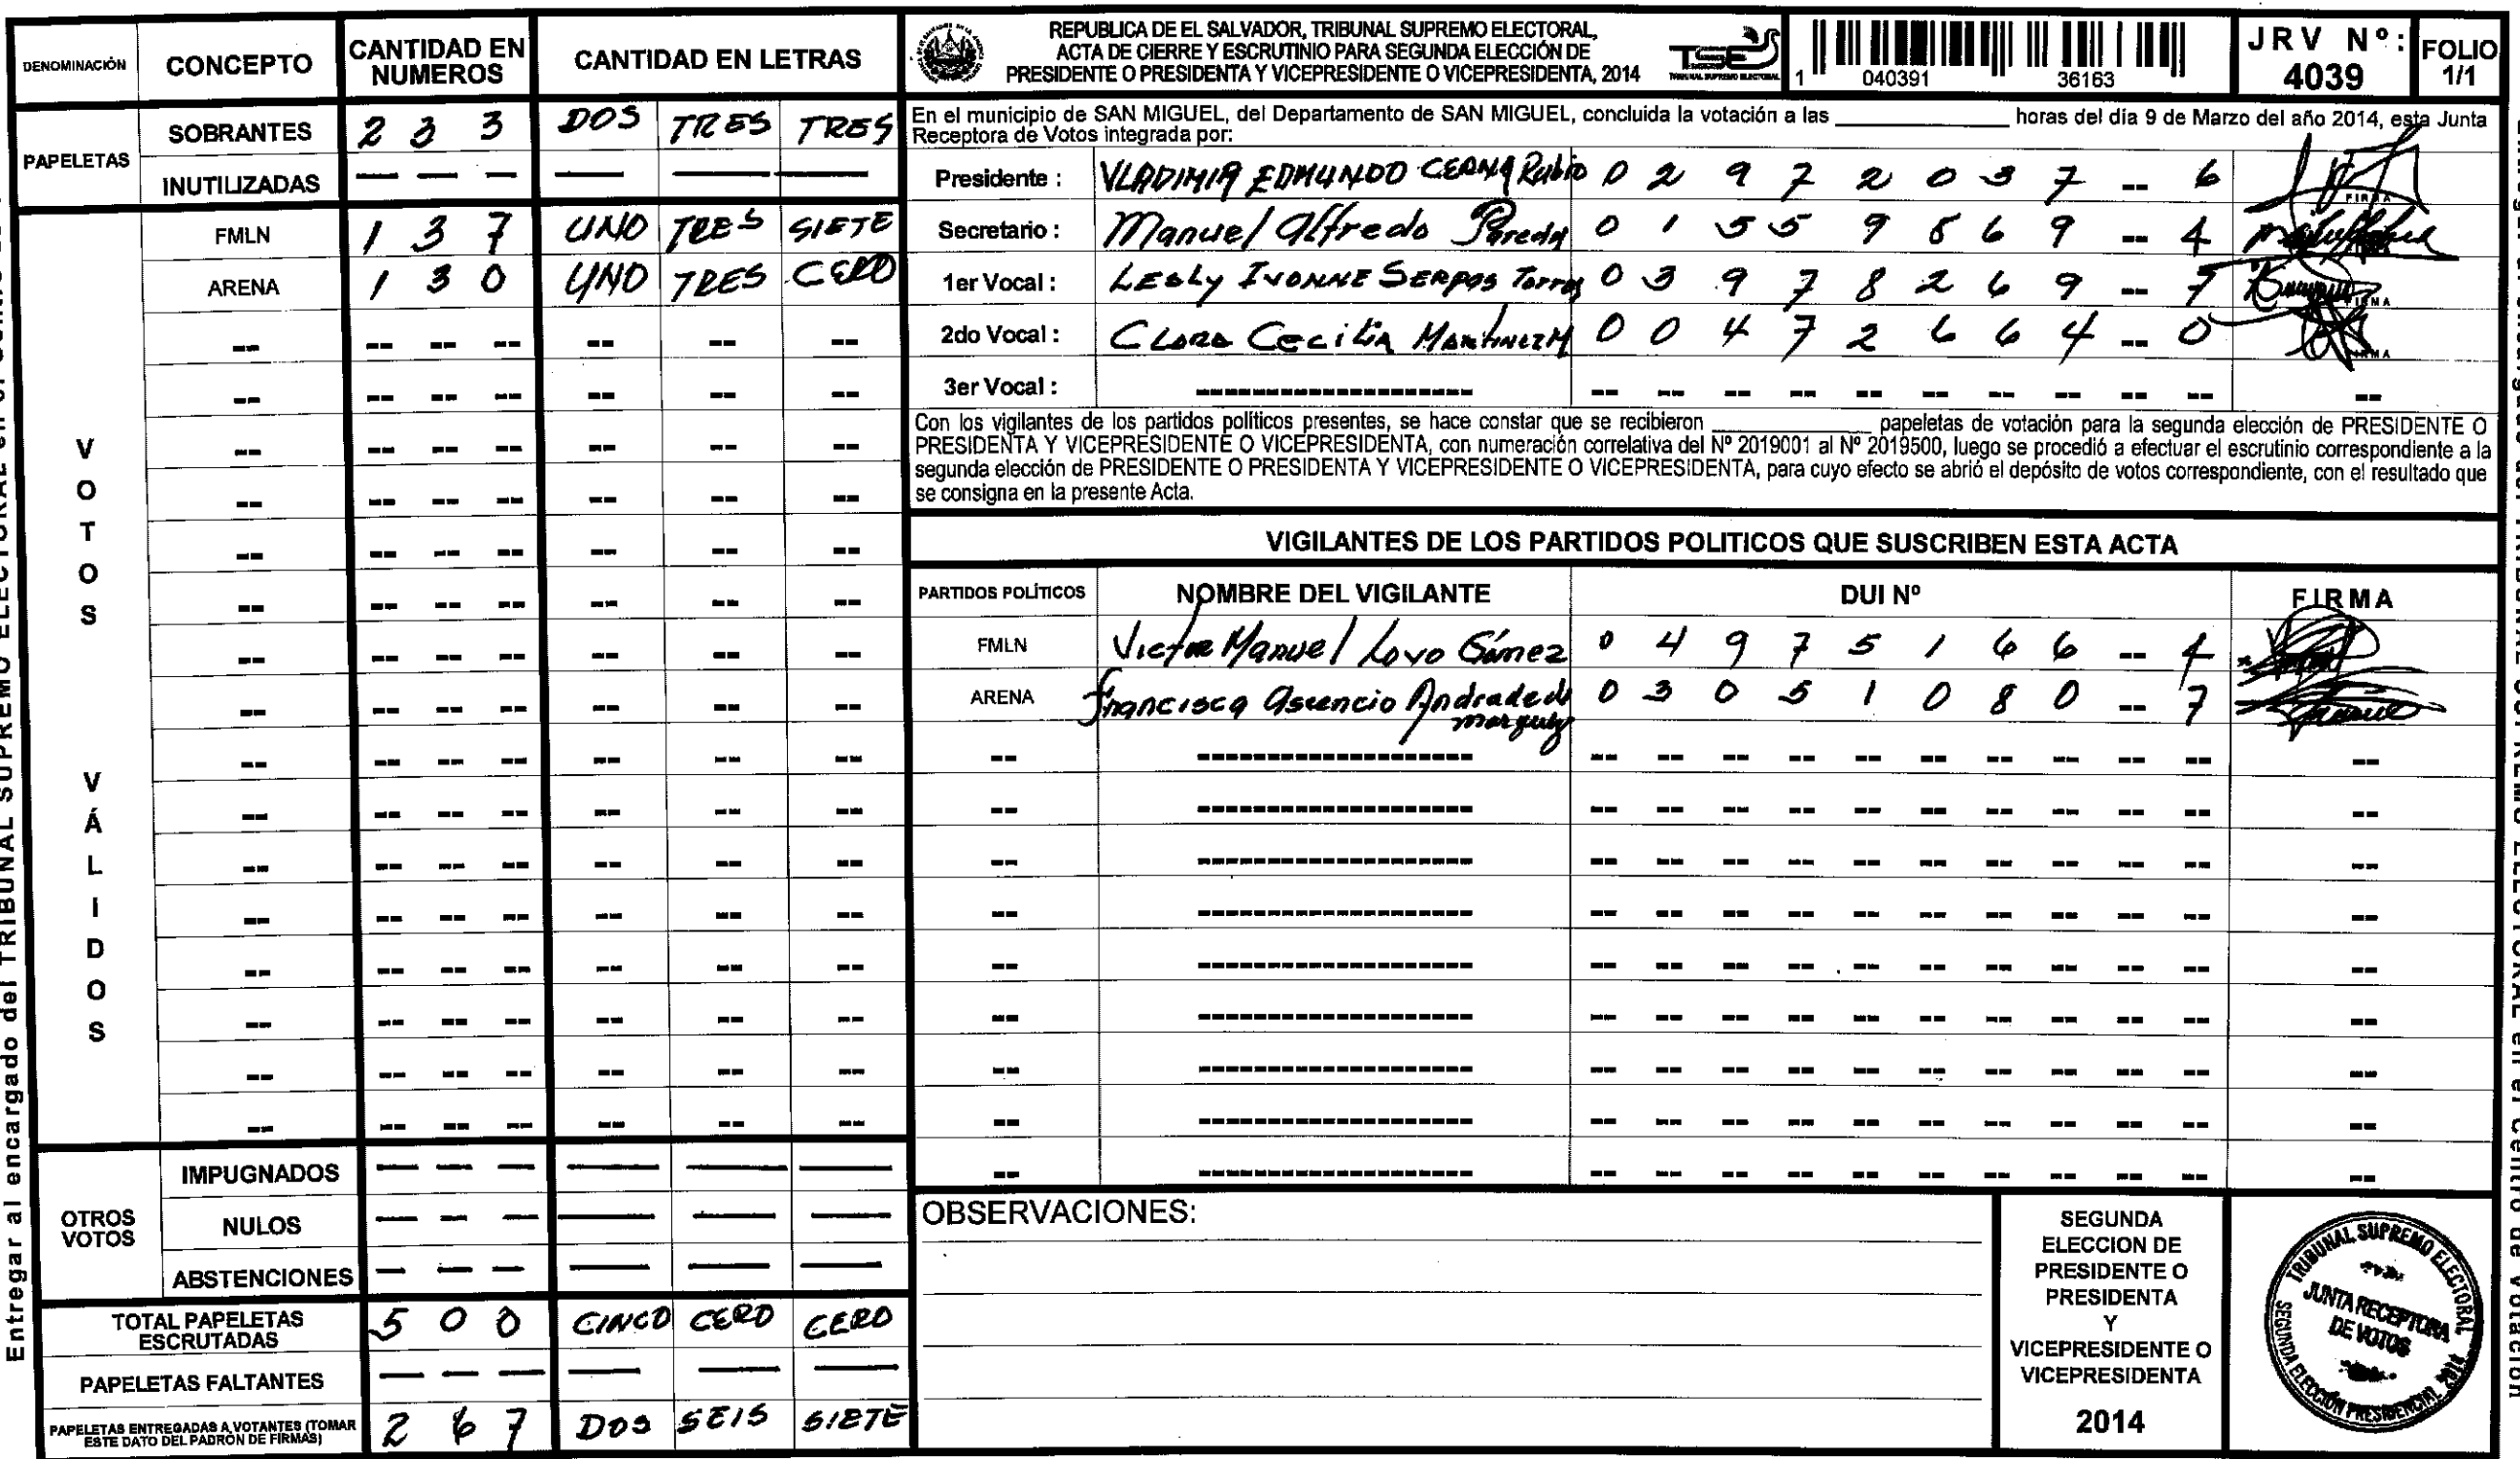 DENOMINACIÓN CONCEPTO CANTIDAD EN NUMEROS CANTIDAD EN LETRAS
PAPELETAS
SOBRANTES 2 3 3 DOS TRES TRES
INUTILIZADAS — — — — — —
VOTOS VÁLIDOS
FMLN 1 3 7 UNO TRES SIETE
ARENA 1 3 0 UNO TRES CERO
OTROS VOTOS
IMPUGNADOS — — — — — —
NULOS — — — — — —
ABSTENCIONES — — — — — —
TOTAL PAPELETAS ESCRUTADAS 5 0 0 CINCO CERO CERO
PAPELETAS FALTANTES — — — — — —
PAPELETAS ENTREGADAS A VOTANTES (TOMAR ESTE DATO DEL PADRÓN DE FIRMAS) 2 6 7 DOS SEIS SIETE
REPUBLICA DE EL SALVADOR, TRIBUNAL SUPREMO ELECTORAL,
ACTA DE CIERRE Y ESCRUTINIO PARA SEGUNDA ELECCIÓN DE
PRESIDENTE O PRESIDENTA Y VICEPRESIDENTE O VICEPRESIDENTA, 2014
TSE
TRIBUNAL SUPREMO ELECTORAL
1 040391 36163
JRV Nº: 4039
FOLIO 1/1
En el municipio de SAN MIGUEL, del Departamento de SAN MIGUEL, concluida la votación a las ____ horas del día 9 de Marzo del año 2014, esta Junta
Receptora de Votos integrada por:
Presidente : VLADIMIR EDMUNDO CERNA Rubio 0 2 9 7 2 0 3 7 -- 6 FIRMA
Secretario : Manuel Alfredo Paredes 0 1 5 5 9 8 6 9 -- 4
1er Vocal : LESLY IVONNE SERPAS Torres 0 3 9 7 8 2 6 9 -- 7 FIRMA
2do Vocal : CLARA CECILIA MARTINEZ M 0 0 4 7 2 6 6 4 -- 0 FIRMA
3er Vocal : -- -- -- -- -- -- -- -- -- -- --
Con los vigilantes de los partidos políticos presentes, se hace constar que se recibieron ____ papeletas de votación para la segunda elección de PRESIDENTE O
PRESIDENTA Y VICEPRESIDENTE O VICEPRESIDENTA, con numeración correlativa del Nº 2019001 al Nº 2019500, luego se procedió a efectuar el escrutinio correspondiente a la
segunda elección de PRESIDENTE O PRESIDENTA Y VICEPRESIDENTE O VICEPRESIDENTA, para cuyo efecto se abrió el depósito de votos correspondiente, con el resultado que
se consigna en la presente Acta.
VIGILANTES DE LOS PARTIDOS POLITICOS QUE SUSCRIBEN ESTA ACTA
PARTIDOS POLÍTICOS NOMBRE DEL VIGILANTE DUI Nº FIRMA
FMLN Victor Manuel Lovo Gámez 0 4 9 7 5 1 6 6 -- 4
ARENA Francisca Ascencio Andrade de
marquez 0 3 0 5 1 0 8 0 -- 7
OBSERVACIONES:
SEGUNDA
ELECCION DE
PRESIDENTE O
PRESIDENTA
Y
VICEPRESIDENTE O
VICEPRESIDENTA
2014
TRIBUNAL SUPREMO ELECTORAL
JUNTA RECEPTORA
DE VOTOS
SEGUNDA ELECCIÓN PRESIDENCIAL 2014
Entregar al encargado del TRIBUNAL SUPREMO ELECTORAL en el
TRIBUNAL SUPREMO ELECTORAL en el Centro de Votación